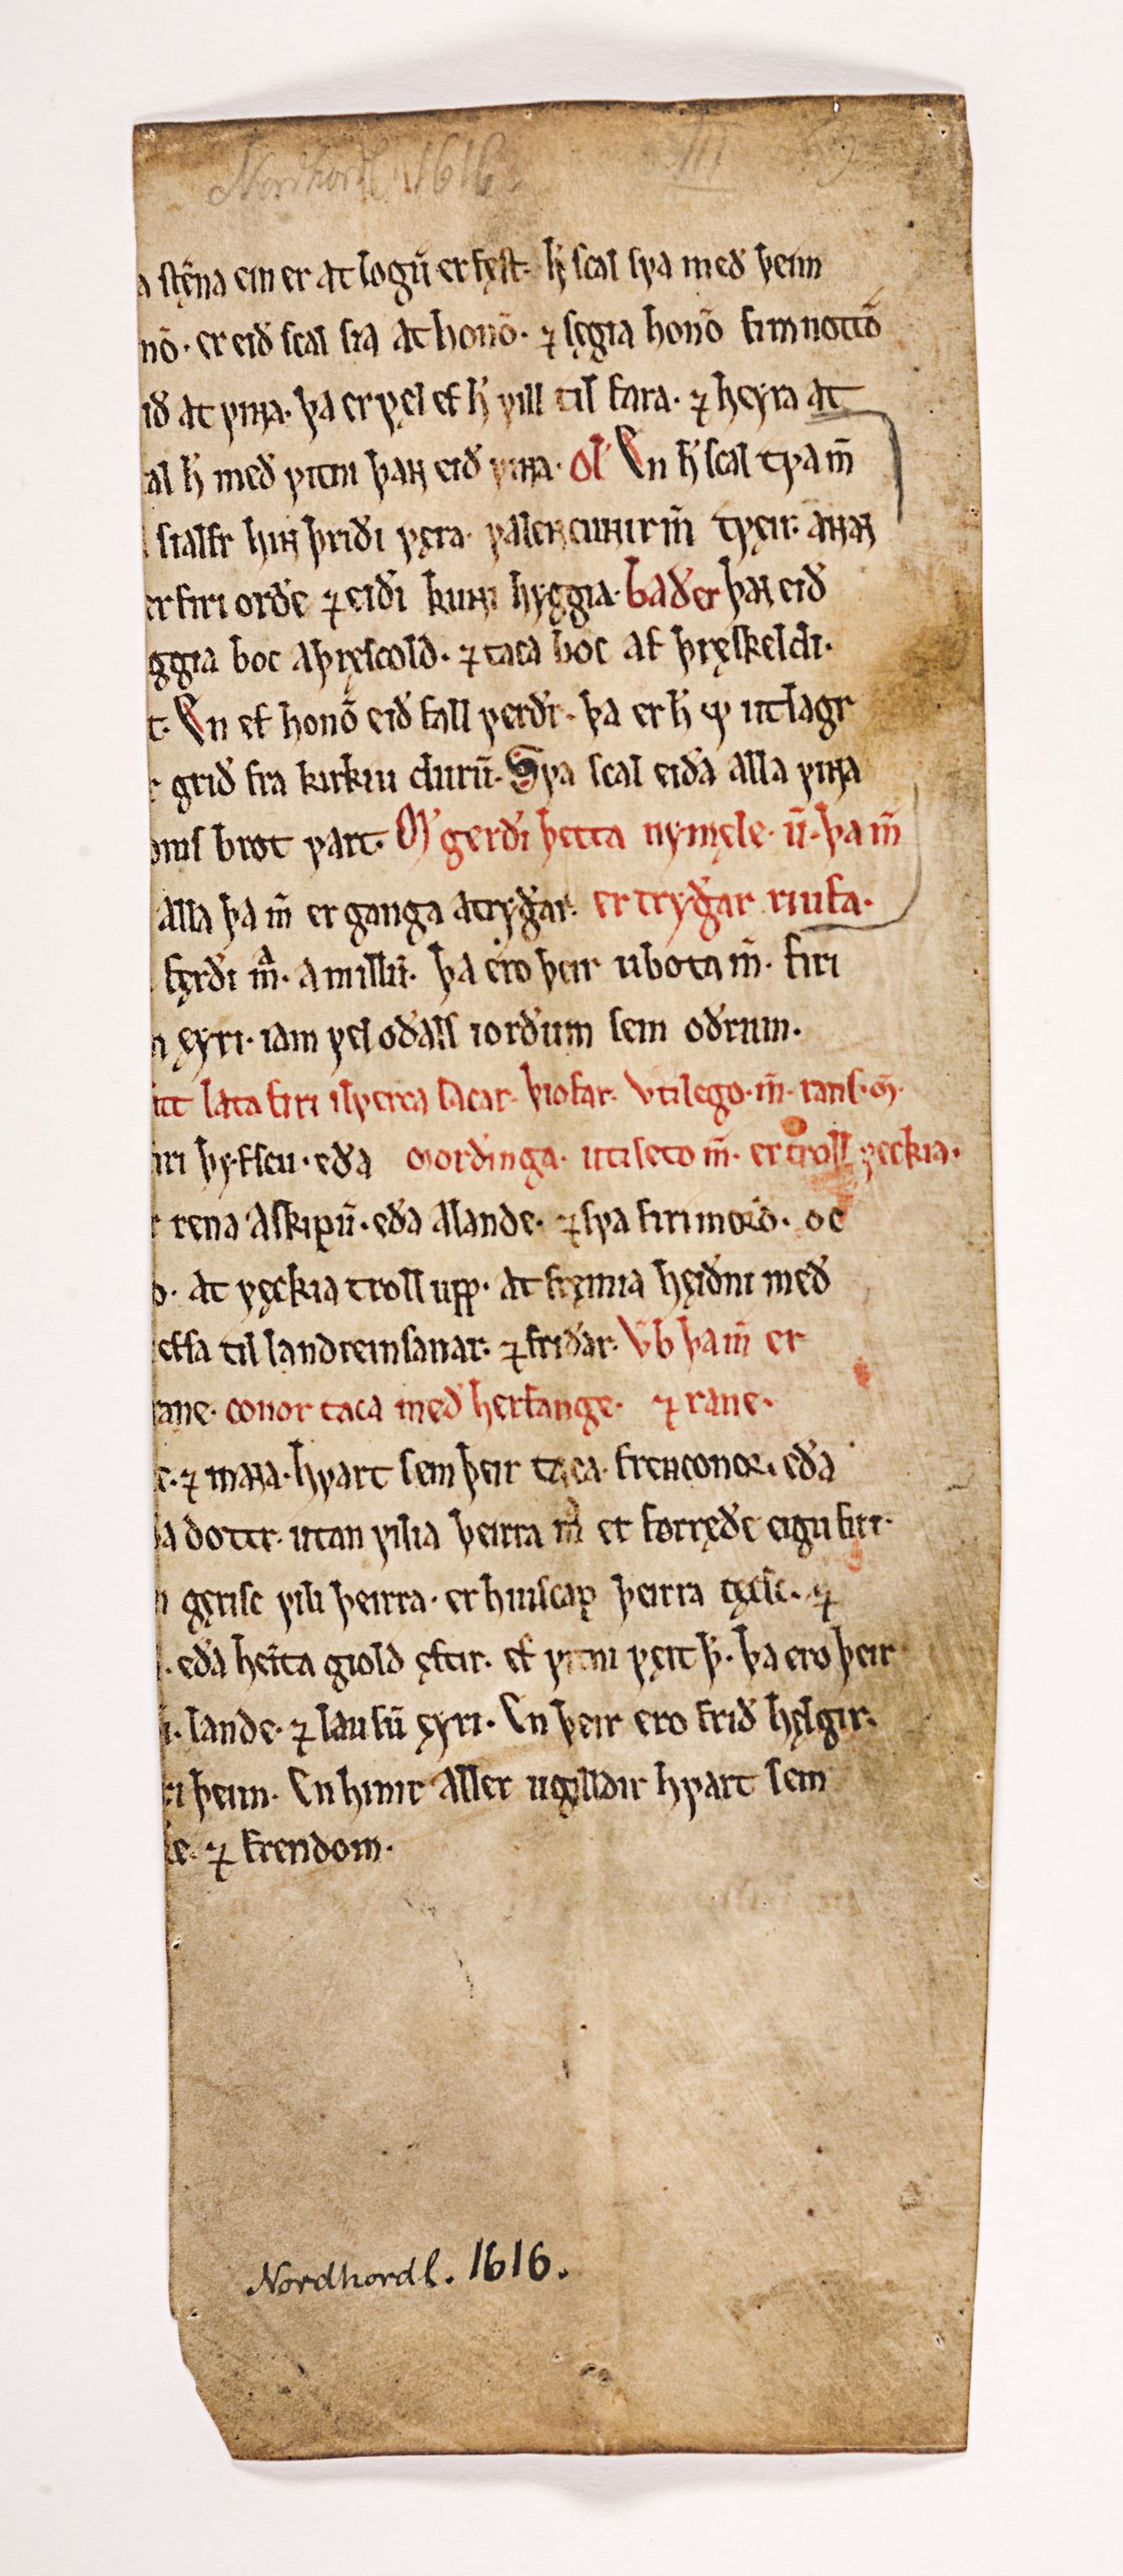 Nordhordl. 1616. III
a stęfna ein er at logū er fęst. h̄ scal sva með þeim
nō· er eið scal sia at honō· ⁊ sęgia honō fim nottō
ið at viɴa· þa er vęl ef h̄ vill til fara· ⁊ heyra at
al h̄ með vitni þaɴ eið viɴa· Ol' En h̄ scal tva m̄
sialfr hiɴ þriði vęra· valeɴcuɴir m̄ tvęir· aɴaɴ
er firi orðe ⁊ eiði kuɴi hyggia· baðer þaɴ eið
ggia boc a þręscold· ⁊ taca boc af þręskeldi·
t· En ef honō eið fall verðr· þa er h̄ utlagr
grið fra kirkiu durū· Sva scal eiða alla viɴa
oms brot vart· M' gerði þetta nymęle· ū· þa m̄
alla þa m̄ er ganga a trygðar· er trygðar riufa·
fęrði m̄· a millū· þa ero þeir ubota m̄· firi
ęyri· iam vel oðals iorðum sem oðrum·
itt lata firi ilverca sacar· þiofar· Vtilego· m̄· rans· m̄·
iri þyfscu· eða morðinga· utiseto m̄· er troll veckia·
rena a skipū· eða a lande· ⁊ sva firi morð· oc
o· at vęckia troll upp· at fręmia hęiðni með
effa til landreinsanar· ⁊ friðar· Vb þa m̄ er
ane· conor taca með herfange· ⁊ rane·
⁊ maɴa· hvart sem þeir taca· freɴconor· eða
a dottr· utan vilia þeirra m̄ er forręðe eigu firi·
gęrisc vili þeirra· er hiuscap þeirra tęcsc· ⁊
eða heimta giold ęftir· ef vitni vęit þ̄· þa ero þeir
lande· ⁊ lausū ęyri· En þeir ero frið hęlgir·
ri þeim· En hinir aller ugilldir hvart sem
e· ⁊ frendom·
Nordhordl. 1616.